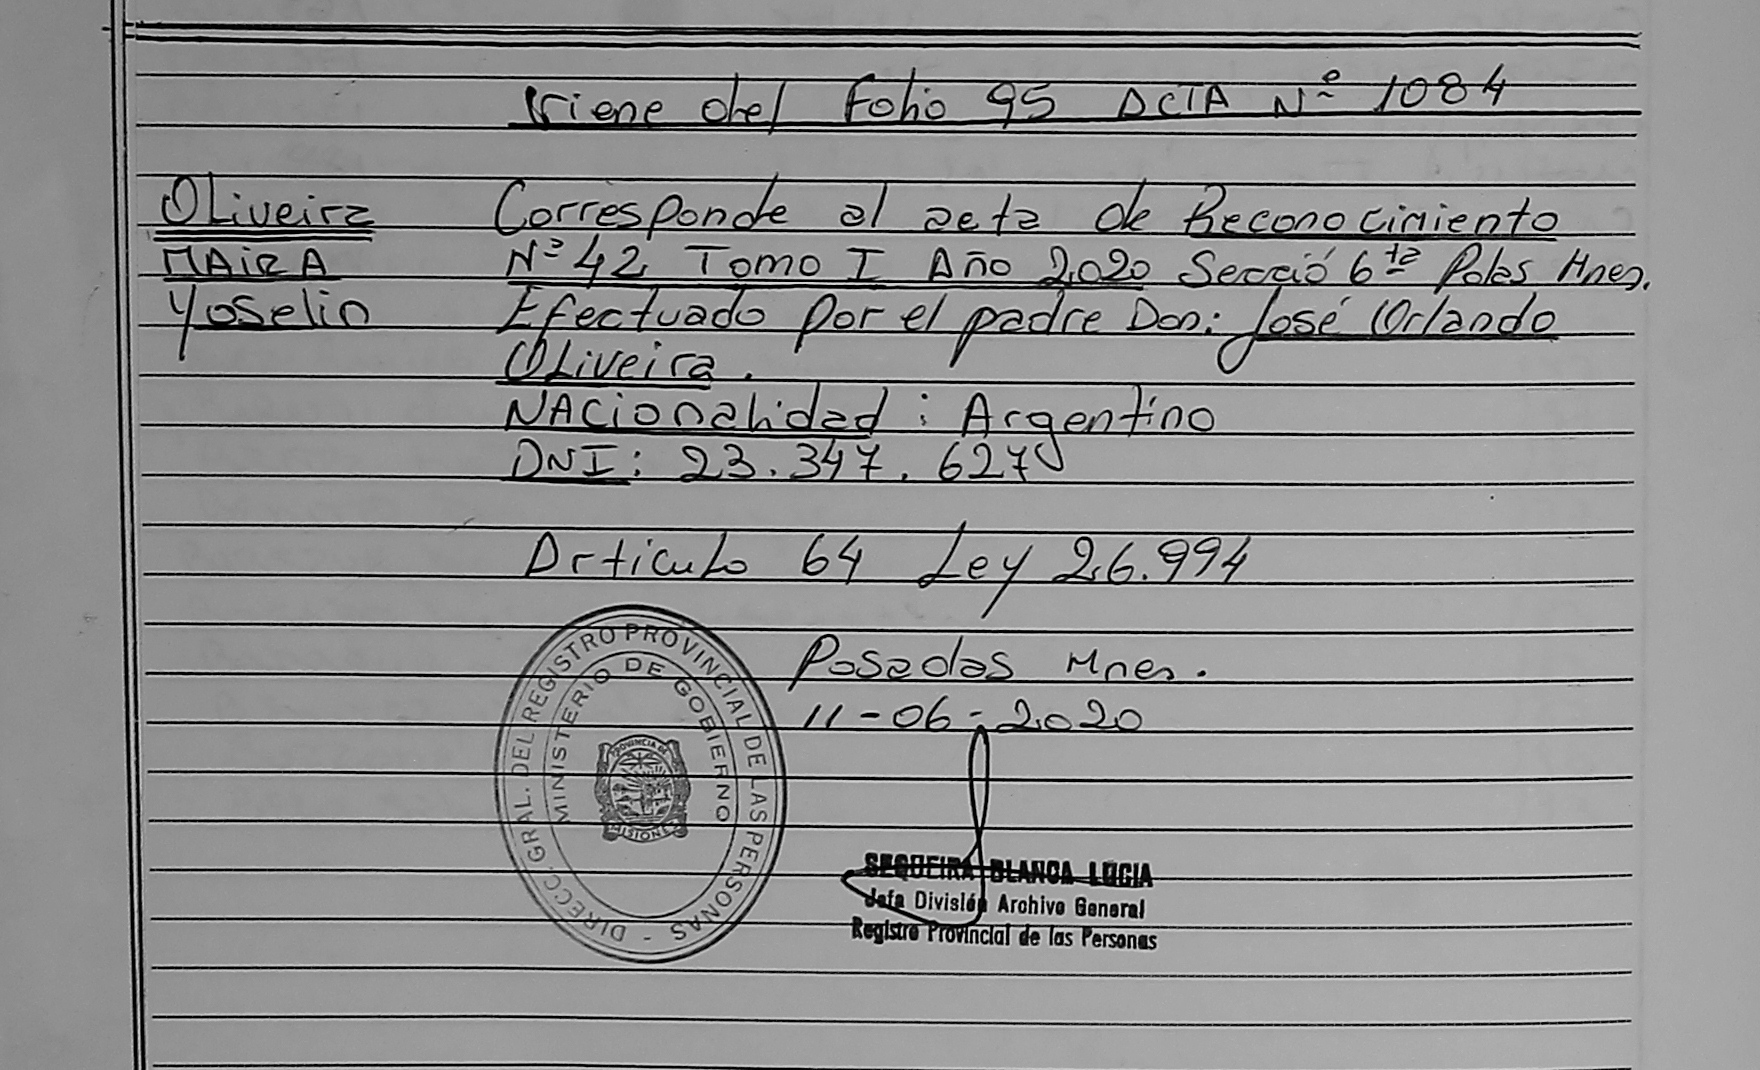 Viene del Folio 95 ACTA Nº 1084
Oliveira
MAIRA
Yoselin
Corresponde al acta de Reconocimiento
Nº 42 Tomo I Año 2020 Secció 6ta Pdas Mnes.
Efectuado por el padre Don: José Orlando
Oliveira.
NACionalidad: Argentino
DNI: 23.347.627
Articulo 64 Ley 26.994
Posadas Mnes.
11-06-2020
DIRECC. GRAL. DEL REGISTRO PROVINCIAL DE LAS PERSONAS -
MINISTERIO DE GOBIERNO
PROVINCIA DE
MISIONES
SEQUEIRA BLANCA LUCIA
Jefa División Archivo General
Registro Provincial de las Personas